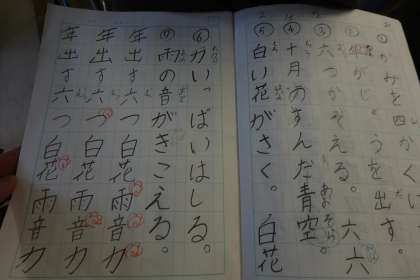 ②年がじょうを出す。
③六つかぞえる。 六
④十月のすんだ青空。
⑤白い花がさく。 白花
⑥力いっぱいはしる。
雨の音がきこえる。
年出す六つ白花雨音力
年出す六つ白花雨音力
年出す六つ白花雨音力